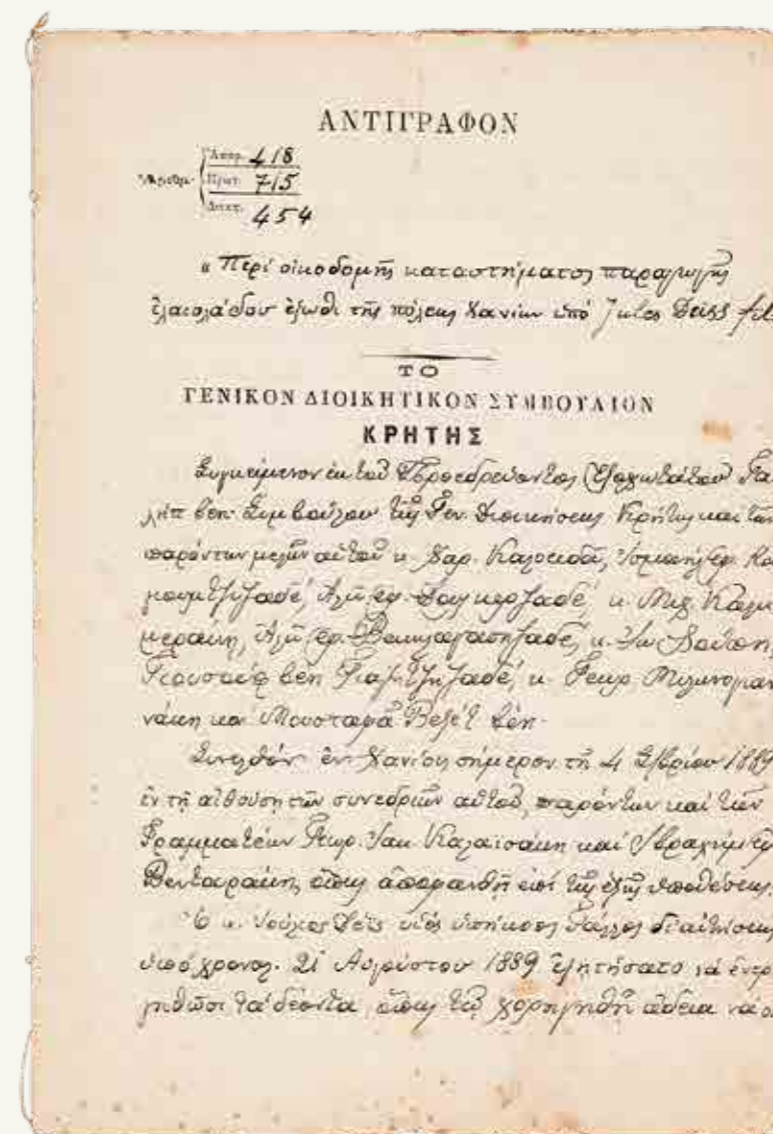 ΑΝΤΙΓΡΑΦΟΝ
Ἀριθμ.
Ἀποφ. 418
Πρωτ. 715
Διεκπ. 454
« Περὶ οἰκοδομῆς καταστήματος παραγωγῆς
ἐλαιολάδου ἔξωθι τῆς πόλεως Χανίων ὑπὸ Jules Deiss fil
ΤΟ
ΓΕΝΙΚΟΝ ΔΙΟΙΚΗΤΙΚΟΝ ΣΥΜΒΟΥΛΙΟΝ
ΚΡΗΤΗΣ
Συγκείμενον ἐκ τοῦ Προεδρεύοντος Ἐξοχωτάτου Γα
λήπ βέη Συμβούλου τῆς Γεν. Διοικήσεως Κρήτης καὶ τῶν
παρόντων μελῶν αὐτοῦ κ. Χαρ.
κ. Μιχ. Καλη
μεράκη,
βέη κ. Γεωρ. Μυλωνογιαν
νάκη καὶ Μουσταφᾶ βέη.
Συνελθὸν ἐν Χανίοις σήμερον τῇ 4 1889
ἐν τῇ αἰθούσῃ τῶν συνεδριῶν αὐτοῦ, παρόντων καὶ τῶν
Γραμματέων Γεωρ. Ἰακ. Καλαϊσάκη καὶ
Βενταράκη, ὅπως ἀποφανθῇ ἐπὶ τῆς ἑξῆς ὑποθέσεως.
Ὁ κ. υἱὸς ὑπήκοος Γάλλος δι' αἰτήσεως
ὑπὸ χρονολ. 21 Αὐγούστου 1889 ἐζητήσατο νὰ ἐνερ
γηθῶσι τὰ δέοντα, ὅπως τῷ χορηγηθῇ ἄδεια νὰ